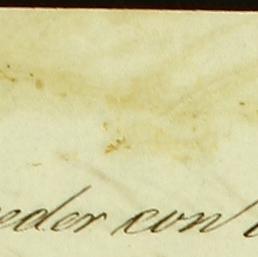 eder con